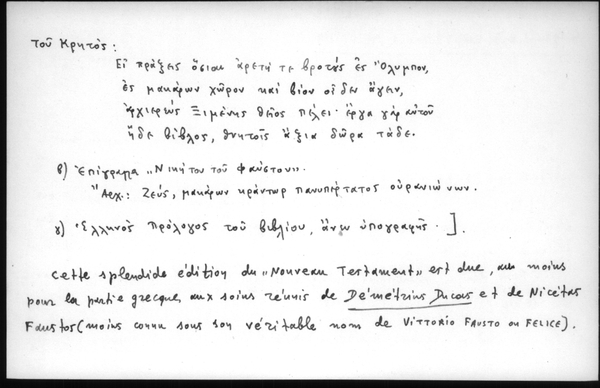 τοῦ Κρητός:
Εἰ πράξεις ὅσιαι ἀρετή τε βροτοὺς ἐς Ὄλυμπον,
ἐς μακάρων χῶρον καὶ βίον οἶδεν ἄγειν,
ἀρχιερεὺς Ξιμένης θεῖος πέλει· ἔργα γὰρ αὐτοῦ
ἥδε βίβλος, θνητοῖς ἄξια δῶρα τάδε.
β) Ἐπίγραμμα „Νικήτου τοῦ Φαύστου".
"Αρχ.: Ζεύς, μακάρων κράντωρ πανυπέρτατος οὐρανιώνων.
γ) Ἑλληνὸς πρόλογος τοῦ βιβλίου, ἄνευ ὑπογραφῆς.].
Cette splendide édition du „Nouveau Testament" est due, au moins
pour la partie grecque, aux soins réunis de Démétrius Ducas et de Nicétas
Faustos (moins connu sous son véritable nom de VITTORIO FAUSTO ou FELICE).